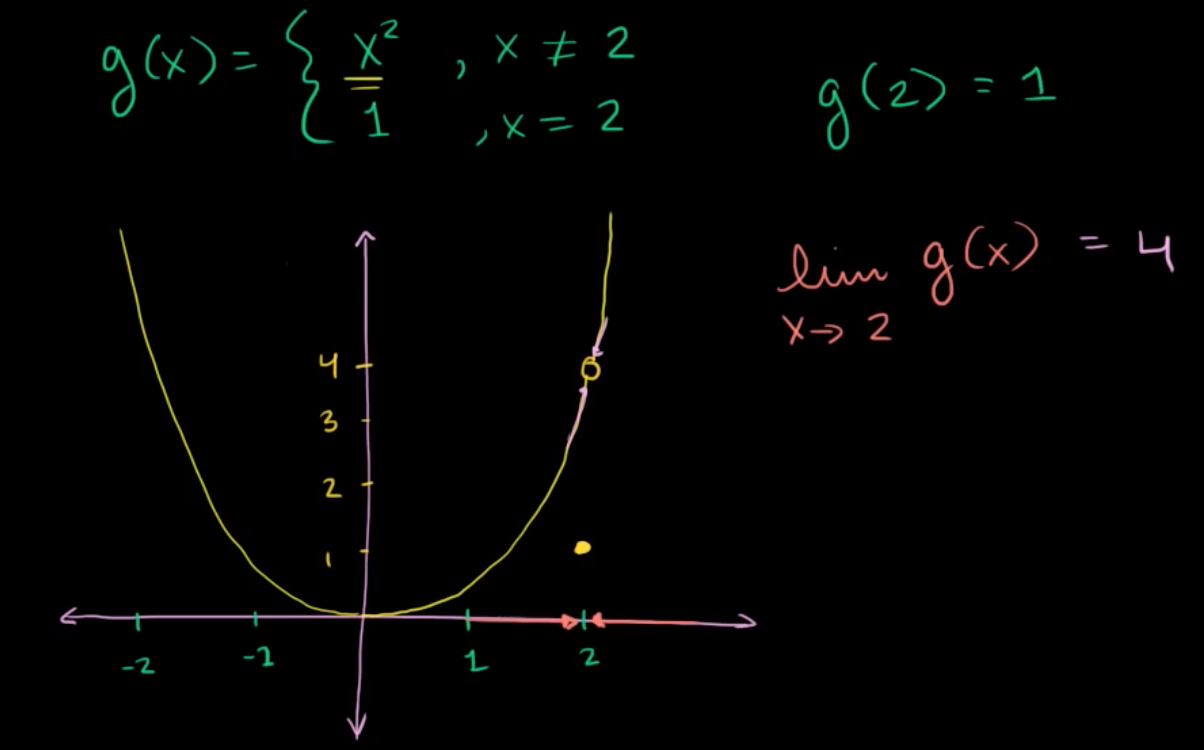 g(x) = { x² , x ≠ 2
1 , x = 2
g(2) = 1
lim g(x) = 4
x→2
4
3
2
1
-2 -1 1 2